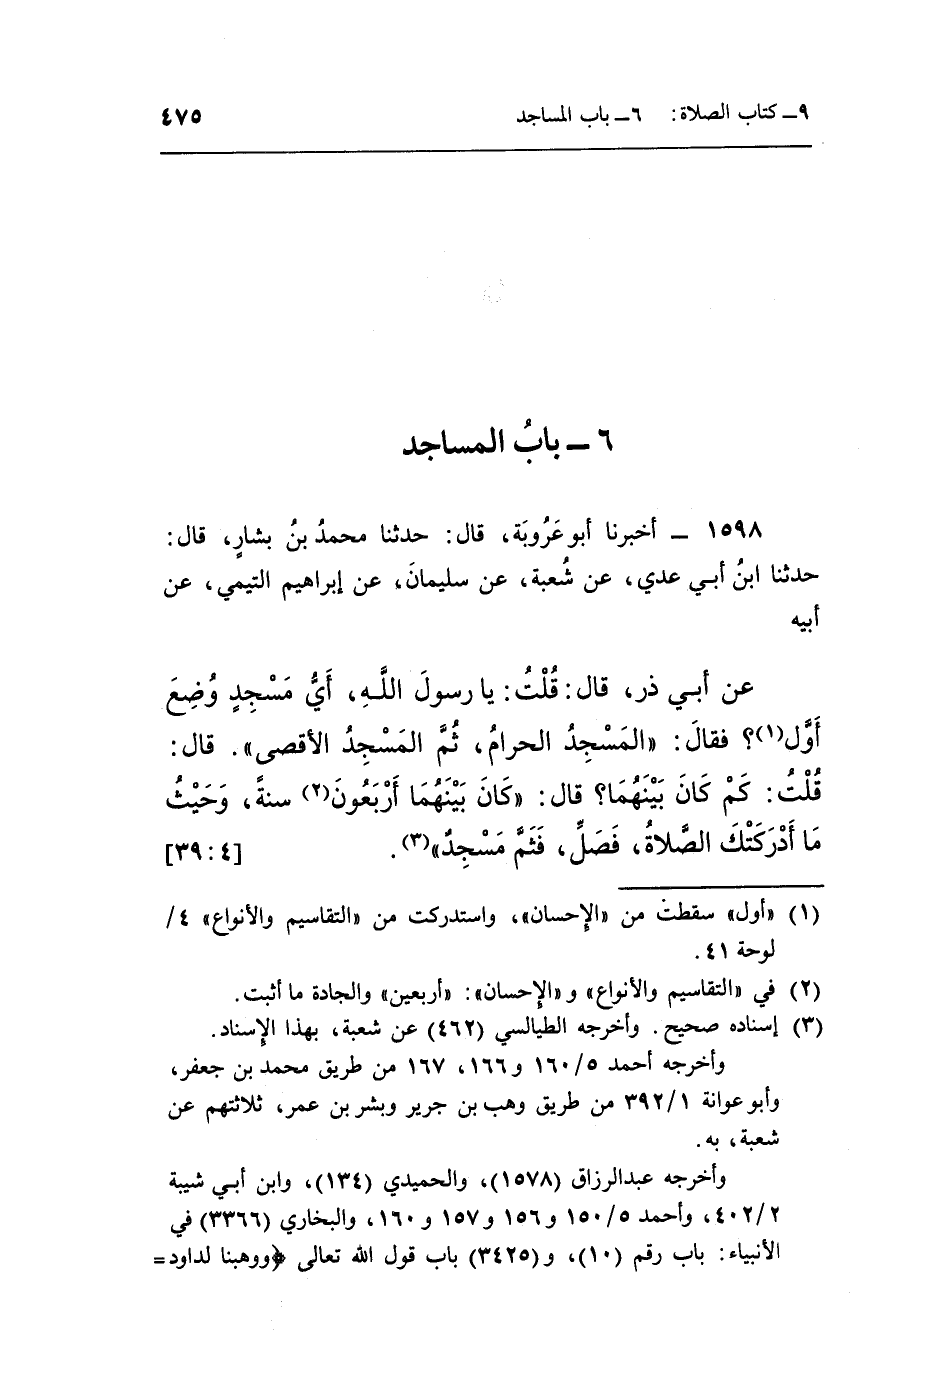 ٩ـ كتاب الصلاة: ٦ـ باب المساجد ٤٧٥
٦ ـ بابُ المساجد
١٥٩٨ ـ أخبرنا أبو عَرُوبَة، قال: حدثنا محمدُ بنُ بشارٍ، قال:
حدثنا ابنُ أبي عدي، عن شُعبة، عن سليمانَ، عن إبراهيم التيمي، عن
أبيه
عن أبي ذر، قال: قُلْتُ: يا رسولَ اللَّهِ، أَيُّ مَسْجِدٍ وُضِعَ
أَوَّل(١)؟ فقالَ: «المَسْجِدُ الحرامُ، ثُمَّ المَسْجِدُ الأقصى». قال:
قُلْتُ: كَمْ كَانَ بَيْنَهُمَا؟ قال: «كَانَ بَيْنَهُمَا أَرْبَعُونَ(٢) سنةً، وَحَيْثُ
مَا أَدْرَكَتْكَ الصَّلاةُ، فَصَلِّ، فَثَمَّ مَسْجِدٌ»(٣). [٤ : ٣٩]
(١) «أول» سقطت من «الإحسان»، واستدركت من «التقاسيم والأنواع» ٤/
لوحة ٤١.
(٢) في «التقاسيم والأنواع» و«الإحسان»: «أربعين» والجادة ما أثبت.
(٣) إسناده صحيح. وأخرجه الطيالسي (٤٦٢) عن شعبة، بهذا الإسناد.
وأخرجه أحمد ١٦٠/٥ و١٦٦، ١٦٧ من طريق محمد بن جعفر،
وأبو عوانة ٣٩٢/١ من طريق وهب بن جرير وبشر بن عمر، ثلاثتهم عن
شعبة، به.
وأخرجه عبدالرزاق (١٥٧٨)، والحميدي (١٣٤)، وابن أبي شيبة
٤٠٢/٢، وأحمد ١٥٠/٥ و١٥٦ و١٥٧ و١٦٠، والبخاري (٣٣٦٦) في
الأنبياء: باب رقم (١٠)، و(٣٤٢٥) باب قول الله تعالى ﴿ووهبنا لداود=